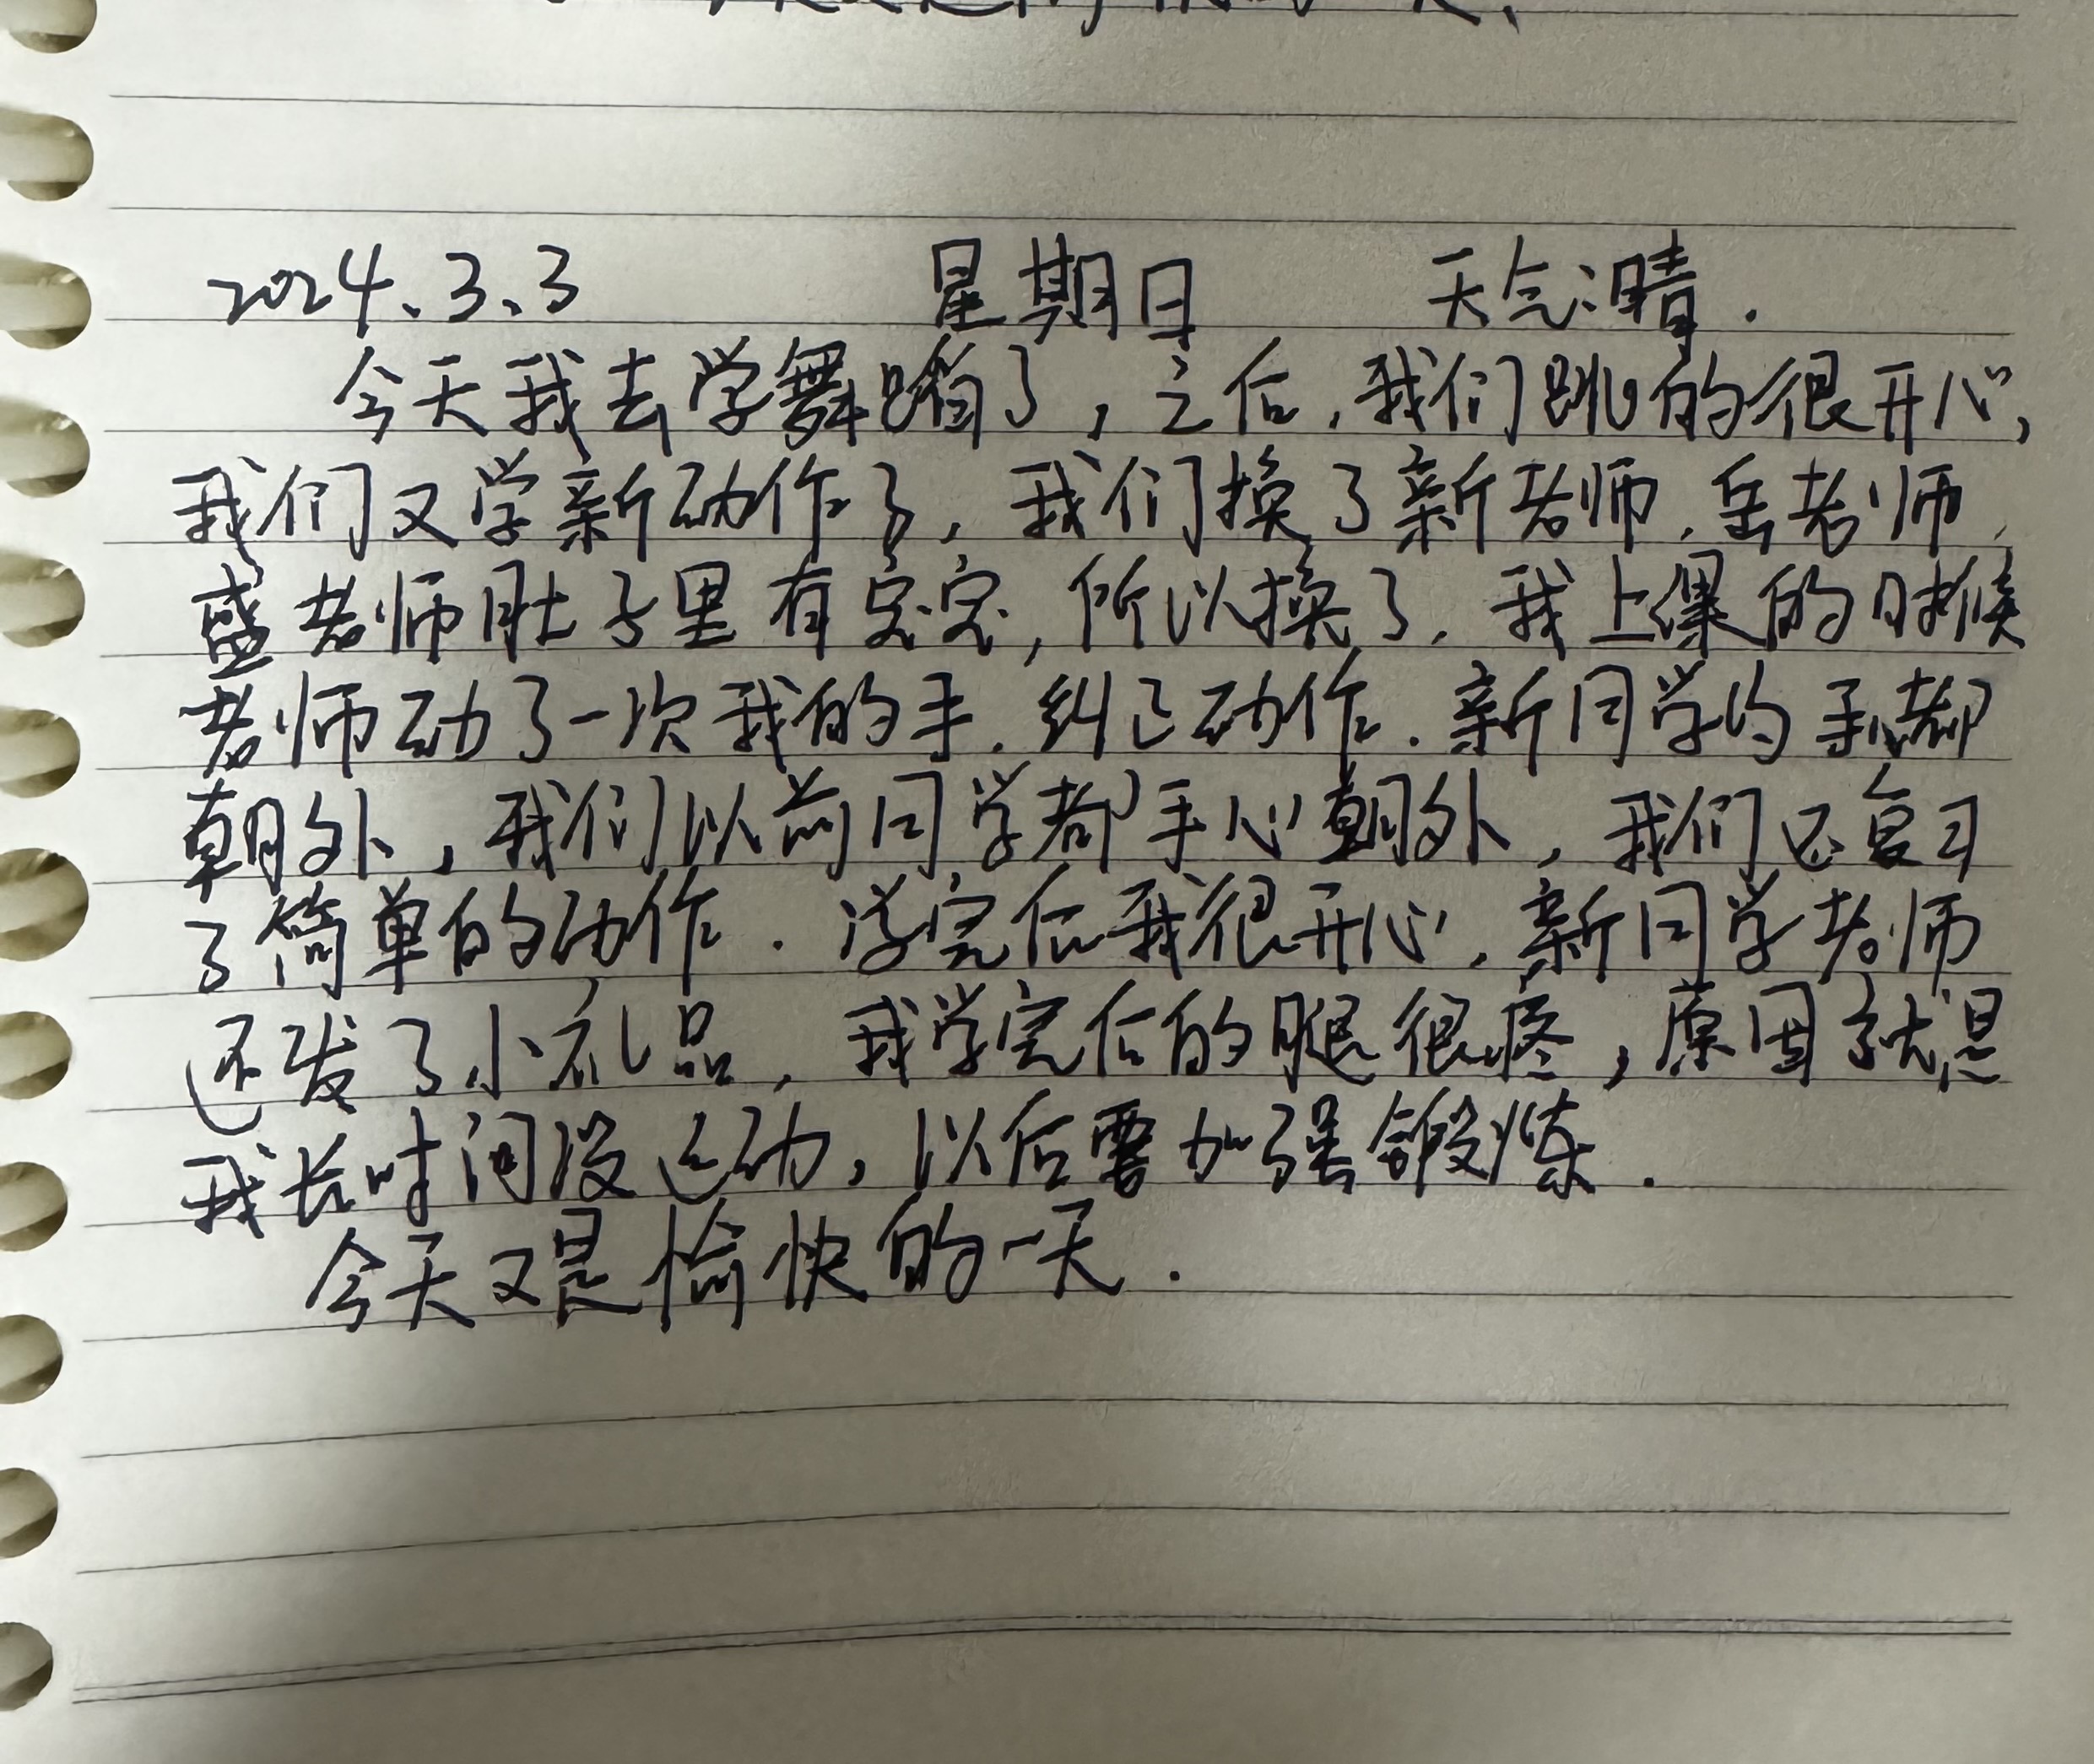 2024.3.3 星期日 天气:晴.
今天我去学舞蹈了,之后,我们跳的很开心,
我们又学新动作了,我们换了新老师.岳老师,
盛老师肚子里有宝宝,所以换了.我上课的时候
老师动了一次我的手.纠正动作.新同学的手都
朝外,我们以前同学都手心朝外,我们还复习
了简单的动作.学完后我很开心.新同学老师
还发了小礼品,我学完后的腿很疼,原因就是
我长时间没运动,以后要加强锻炼.
今天又是愉快的一天.